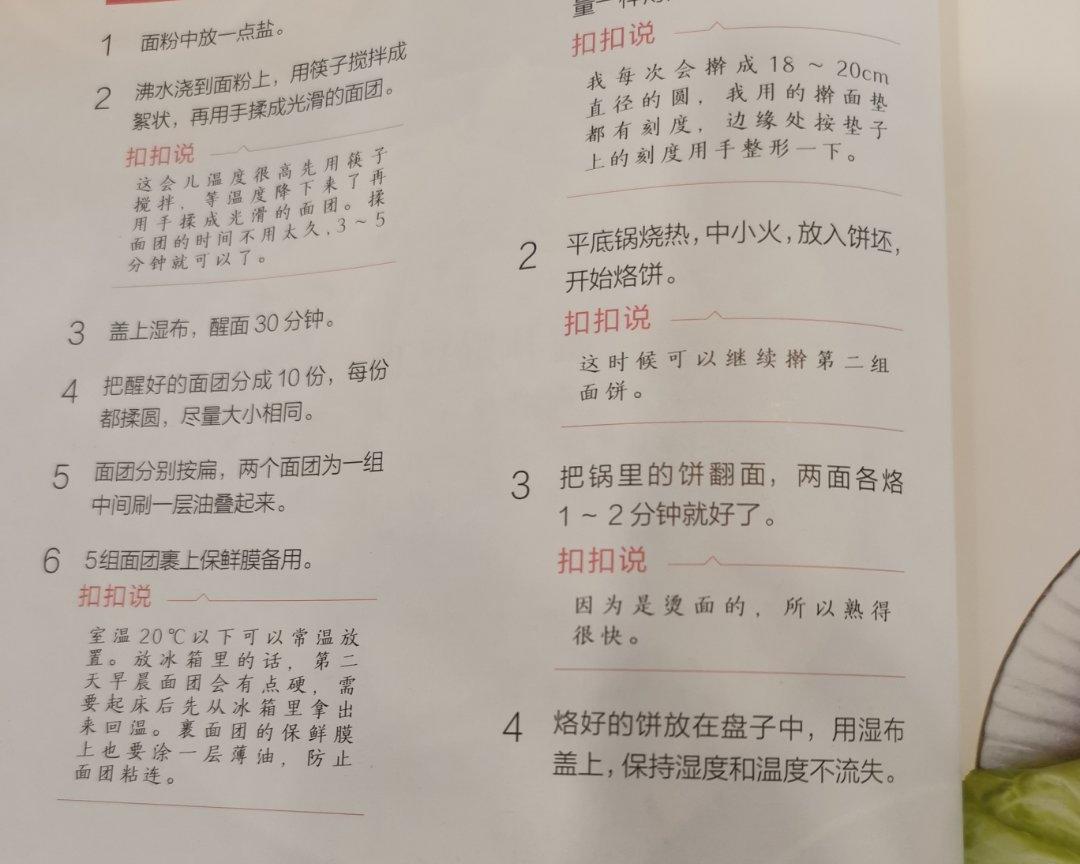 1 面粉中放一点盐。
2 沸水浇到面粉上，用筷子搅拌成
絮状，再用手揉成光滑的面团。
扣扣说
这会儿温度很高先用筷子
搅拌，等温度降下来了再
用手揉成光滑的面团。揉
面团的时间不用太久，3～5
分钟就可以了。
3 盖上湿布，醒面30分钟。
4 把醒好的面团分成10份，每份
都揉圆，尽量大小相同。
5 面团分别按扁，两个面团为一组
中间刷一层油叠起来。
6 5组面团裹上保鲜膜备用。
扣扣说
室温20℃以下可以常温放
置。放冰箱里的话，第二
天早晨面团会有点硬，需
要起床后先从冰箱里拿出
来回温。裹面团的保鲜膜
上也要涂一层薄油，防止
面团粘连。
量一样
扣扣说
我每次会擀成18～20cm
直径的圆，我用的擀面垫
都有刻度，边缘处按垫子
上的刻度用手整形一下。
2 平底锅烧热，中小火，放入饼坯，
开始烙饼。
扣扣说
这时候可以继续擀第二组
面饼。
3 把锅里的饼翻面，两面各烙
1～2分钟就好了。
扣扣说
因为是烫面的，所以熟得
很快。
4 烙好的饼放在盘子中，用湿布
盖上，保持湿度和温度不流失。